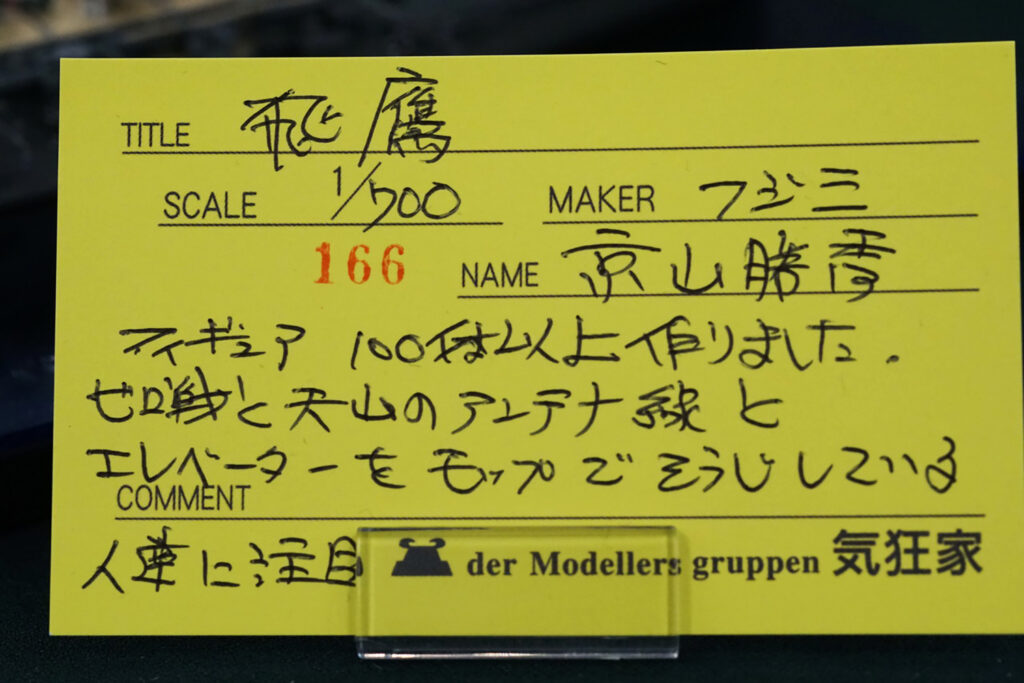 TITLE 飛鷹
SCALE 1/700 MAKER フジミ
166 NAME 京山勝秀
フィギュア 100体以上作りました.
ゼロ戦と天山のアンテナ線と
エレベーターを モップで そうじしている
COMMENT
人達に注目
der Modellers gruppen 気狂家